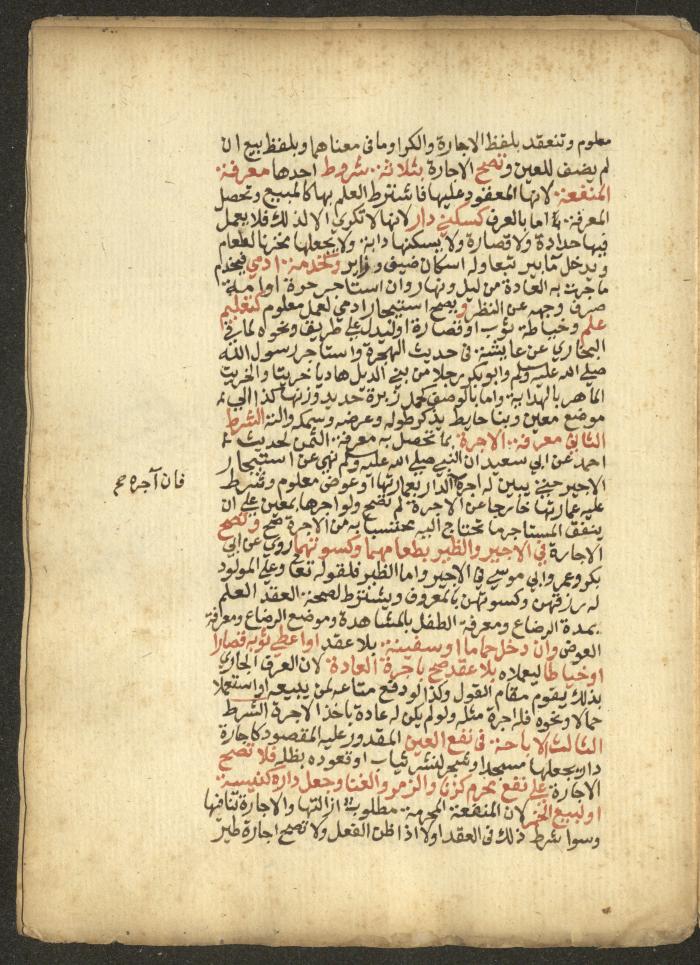 معلوم وتنعقد بلفظ الاجارة والكرا وما في معناهما وبلفظ بيع ان
لم يضف للعين وتصح الاجارة بثلاثة شروط احدها معرفة
المنفعة لانها المعقود عليها فاشترط العلم بها كالمبيع وتحصل
المعرفة اما بالعرف كسكنى دار لانها لا تكرى الا لذلك فلا يعمل
فيها حدادة ولا قصارة ولا يسكنها دابة ولا يجعلها مخزنا لطعام
ويدخل ما بير تبعا وله اسكان ضيف وزاير وكخدمة ادمي فيخدم
ما جرت به العادة من ليل ونهار وان استاجر حرة او امة
صرف وجهه عن النظر ويصح استيجار ادمي لعمل معلوم كتعليم
علم وخياطة ثوب او قصارة او ليدل على طريق ونحوه لما في
البخاري عن عايشة في حديث الهجرة واستاجر رسول الله
صلى الله عليه وسلم وابو بكر رجلا من بني الديل هاديا خريتا والخريت
الماهر بالهداية واما بالوصف كحمل زبرة حديد وزنها كذا الى
موضع معين وبنا حايط يذكر طوله وعرضه وسمكه والته الشرط
الثاني معرفة الاجرة بما تحصل به معرفة الثمن لحديث
احمد عن ابي سعيد ان النبي صلى الله عليه وسلم نهى عن استيجار
الاجير حتى يبين له اجره فان اجره الدار بعمارتها او عوض معلوم وشرط
عليه عمارتها خارجا عن الاجرة لم تصح ولو اجرها بمعين على ان
ينفق المستاجر ما تحتاج اليه محتسبا به من الاجرة صح وتصح
الاجارة في الاجير والظير بطعامهما وكسوتهما روي عن ابي
بكر وعمر وابي موسى في الاجير واما الظير فلقوله تعا وعلى المولود
له رزقهن وكسوتهن بالمعروف ويشترط لصحة العقد العلم
بمدة الرضاع ومعرفة الطفل بالمشاهدة وموضع الرضاع ومعرفة
العوض وان دخل حماما او سفينة بلا عقد او اعطى ثوبه قصارا
او خياطا ليعملاه بلا عقد صح باجرة العادة لان العرف الجاري
بذلك يقوم مقام القول وكذا لو دفع متاعه لمن يبيعه او استعمل
حمالا ونحوه فله اجرة مثله ولو لم يكن له عادة باخذ الاجرة الشرط
الثالث الاباحة في نفع العين المقدور عليه المقصود كاجارة
دار يجعلها مسجدا وشجر لنشر ثياب او قعوده بظله فلا تصح
الاجارة على نفع محرم كزنا والزمر والغنا وجعل داره كنيسة
او لبيع الخمر لان المنفعة المحرمة مطلوب ازالتها والاجارة تنافيها
وسوا شرط ذلك في العقد او لا اذا ظن الفعل ولا تصح اجارة طير
فان آجره صح